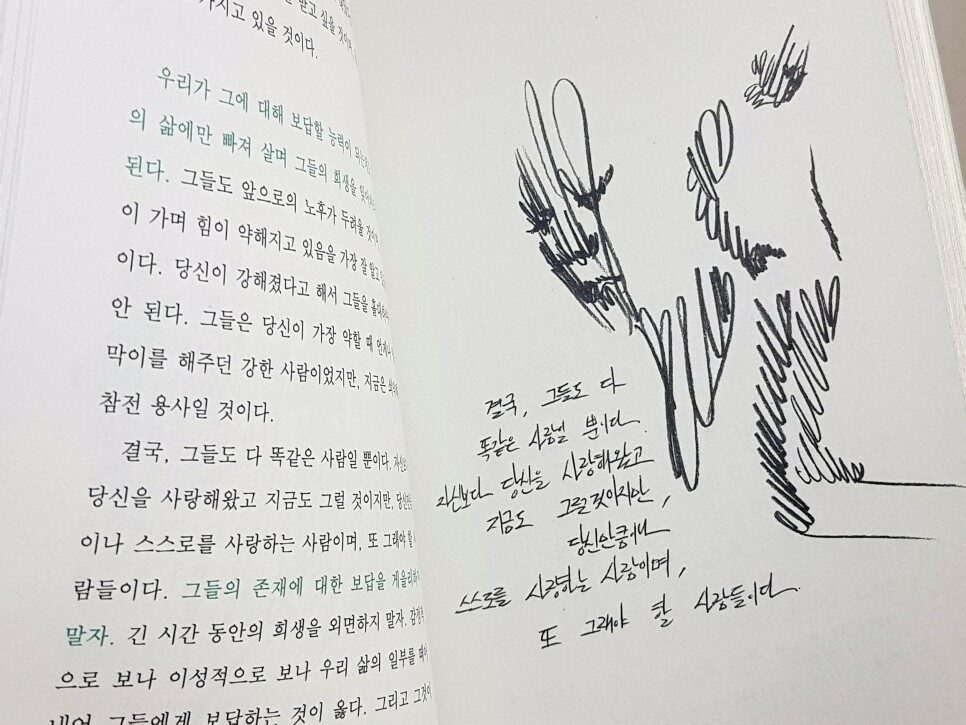 받고 싶을
있을 것이다.
우리가 그에 대해 보답할 능력이
의 삶에만 빠져 살며 그들의 희생을
된다. 그들도 앞으로의 노후가 두려울
이 가며 힘이 약해지고 있음을 가장 잘 알고
이다. 당신이 강해졌다고 해서 그들을
안 된다. 그들은 당신이 가장 약할 때
막이를 해주던 강한 사람이었지만, 지금은
참전 용사일 것이다.
결국, 그들도 다 똑같은 사람일 뿐이다.
당신을 사랑해왔고 지금도 그럴 것이지만,
이나 스스로를 사랑하는 사람이며, 또 그래야 할
람들이다. 그들의 존재에 대한 보답을
말자. 긴 시간 동안의 희생을 외면하지 말자.
으로 보나 이성적으로 보나 우리 삶의 일부를
내어 그들에게 보답하는 것이 옳다. 그리고
결국, 그들도 다
똑같은 사람일 뿐이다.
자신보다 당신을 사랑해왔고
지금도 그럴것이지만,
당신만큼이나
스스로를 사랑하는 사람이며,
또 그래야 할 사람들이다.